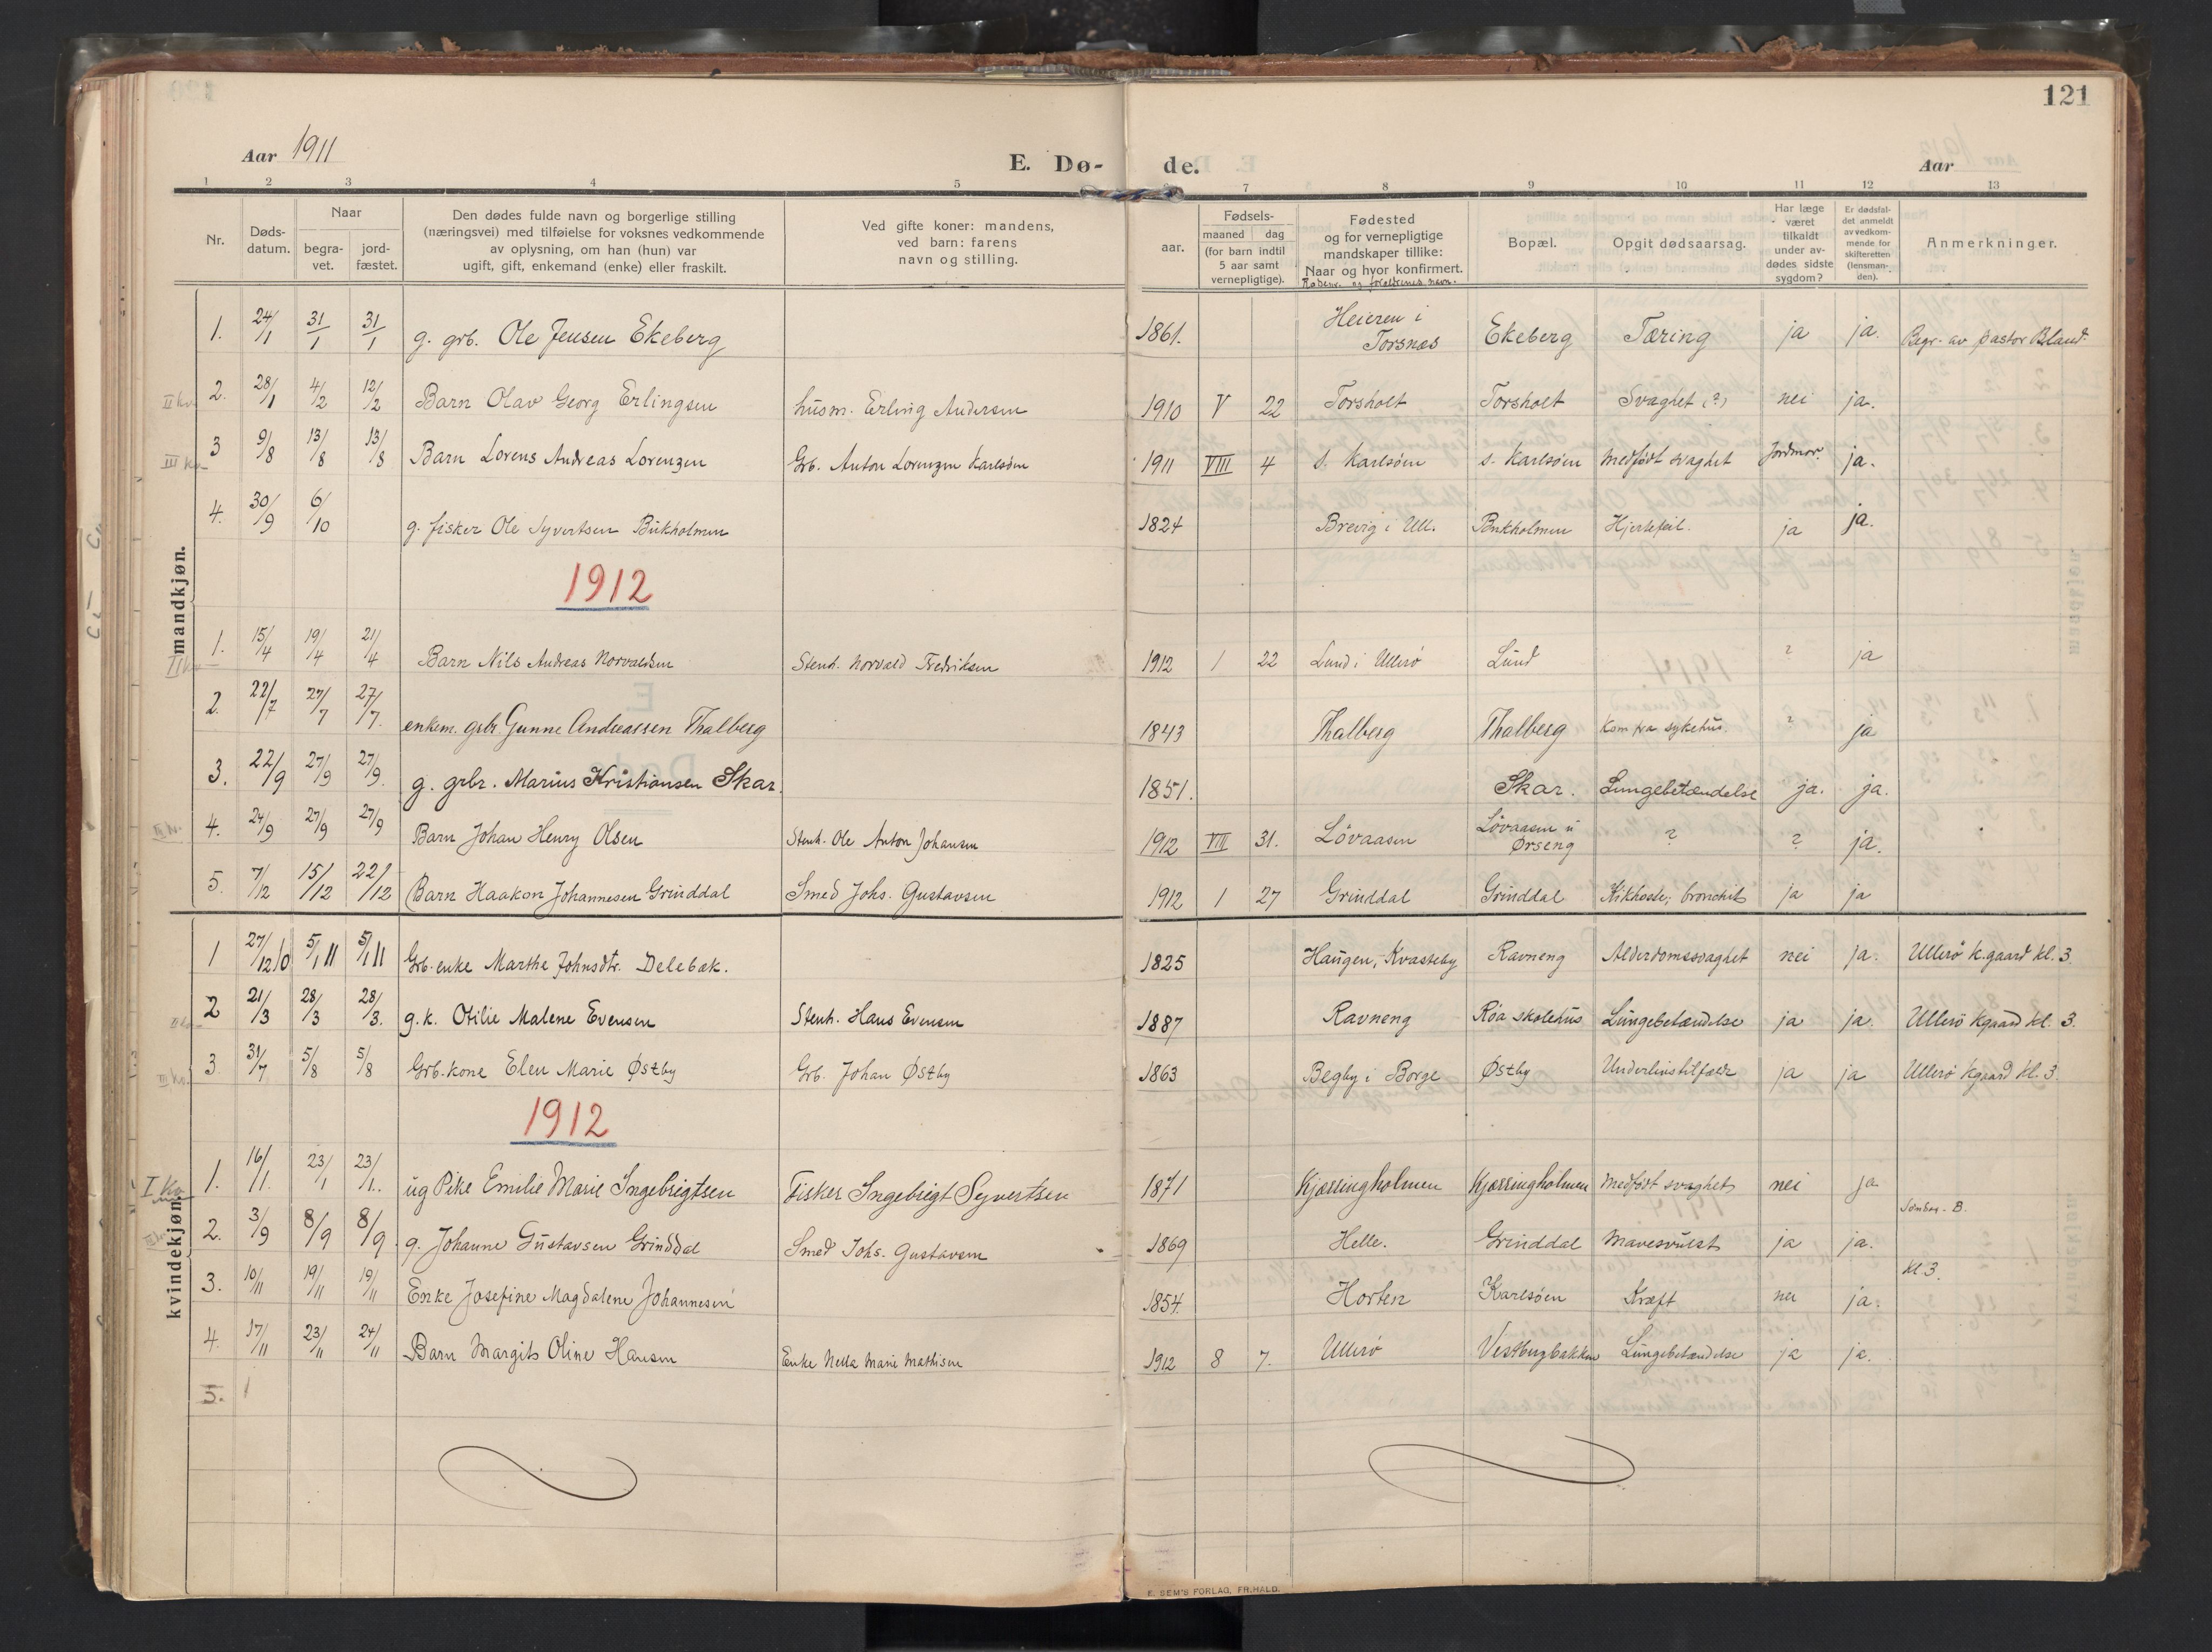 121
Aar 1911 E. Dø- de. Aar
1 2 3 4 5 7 8 9 10 11 12 13
Nr.
Døds-
datum.
Naar
begra-
vet.
jord-
fæstet.
Den dødes fulde navn og borgerlige stilling
(næringsvei) med tilføielse for voksnes vedkommende
av oplysning, om han (hun) var
ugift, gift, enkemand (enke) eller fraskilt.
Ved gifte koner: mandens,
ved barn: farens
navn og stilling.
aar.
Fødsels-
maaned dag
(for barn indtil
5 aar samt
vernepligtige).
Fødested
og for vernepligtige
mandskaper tillike:
Naar og hvor konfirmert.
Bopæl.
Opgit dødsaarsag.
Har læge
været
tilkaldt
under av-
dødes sidste
sygdom?
Er dødsfal-
det anmeldt
av vedkom-
mende for
skifteretten
(lensman-
den).
Anmerkninger.
mandkjøn.
1. 24/1 31/1 31/1 g. grb. Ole Jensen Ekeberg 1861. Heieren i Torsnæs Ekeberg Tæring ja ja. Begr. av pastor Bland.
2. 28/1 4/2 12/2 Barn Olav Georg Erlingsen husm. Erling Andersen 1910 V 22 Torsholt Torsholt Svaghet (?) nei ja.
3 9/8 13/8 13/8 Barn Lorens Andreas Lorenzen Grb. Anton Lorenzen Karlsøen 1911 VIII 4 s. Karlsøen s. Karlsøen Medfødt svaghet Jordmor. ja.
4. 30/9 6/10 g. fisker Ole Syvertsen Bukholmen 1824 Brevig i Ull. Bukholmen Hjertefeil. ja ja.
1912
1. 15/4 19/4 21/4 Barn Nils Andreas Norvaldsen Stenh. Norvald Fredriksen 1912 1 22 Lund i Ullerø Lund ? ja
2. 22/7 27/7 27/7. enkem. grbr Gunne Andreassen Thalberg 1843 Thalberg Thalberg Kom fra sykehus. ? ja
3. 22/9 27/9 27/9. g. grbr. Marius Kristiansen Skar. 1851. Skar. Lungebetændelse ja. ja.
4. 24/9 27/9 27/9 Barn Johan Henry Olsen Stenh. Ole Anton Johansen 1912 VII 31. Løvaasen Løvaasen u Ørseng ? ? ja.
5. 7/12 15/12 22/12 Barn Haakon Johannesen Grinddal Smed Johs. Gustavsen 1912 1 27 Grinddal Grinddal Kikhoste, bronchit ja ja
kvindekjøn.
1 27/12 10 5/1 11 5/1 11 Grb. enke Marthe Johnsdtr. Delebæk. 1825 Haugen, Kvasteby Ravneng Alderdomssvaghet nei ja. Ullerø k.gaard kl. 3.
2 21/3 28/3 28/3. g.k. Otilie Malene Evensen Stenh. Hans Evensen 1887 Ravneng Røa skolehus Lungebetændelse ja ja. Ullerø Kgaard kl. 3.
3. 31/7 5/8 5/8 Grb. kone Elen Marie Østby Grb. Johan Østby 1863 Begby i Borge Østby Underlivstilfælde ja ja Ullerø Kgaard kl. 3.
1912
1. 16/1. 23/1 23/1. ug Pike Emilie Marie Ingebrigtsen Fisker Ingebrigt Syvertsen 1871 Kjærringholmen Kjærringholmen Medfødt svaghet nei ja
2. 3/9 8/9 8/9 g. Johanne Gustavsen Grinddal Smed Johs. Gustavsen 1869 Helle. Grinddal Mavesvulst ja ja.
3. 10/11 19/11 19/11 Enke Josefine Magdalene Johannesen 1854. Horten Karlsøen Kræft nei ja. kl 3.
4. 17/11 23/11 24/11 Barn Margit Oline Hansen Enke Nella Marie Mathisen 1912 8 7. Ullerø Vestbygbakken Lungebetændelse ja ja.
5.
E. SEM'S FORLAG, FR.HALD.